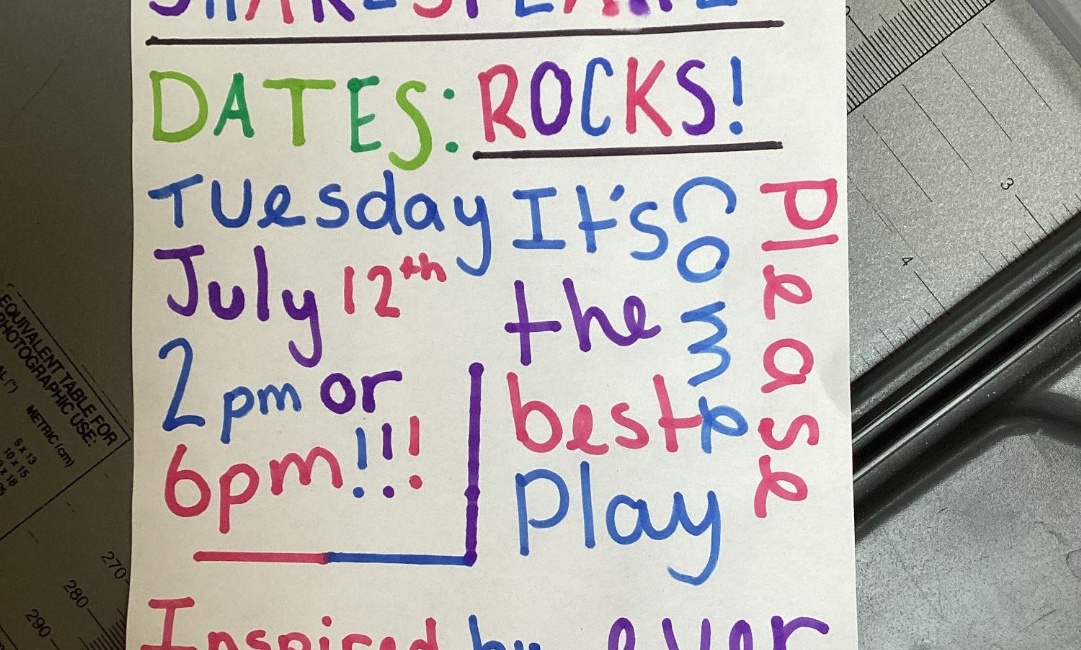 SHAKESPEARE
DATES: ROCKS!
Tuesday
July 12th
2pm or
6pm!!!
It's
the
best
Play
Comp
Please
Inspired by ever
EQUIVALENT TABLE FOR
PHOTOGRAPHIC USE:
METRIC (cm)
9 x 13
10 x 15
270
280
290
3
4